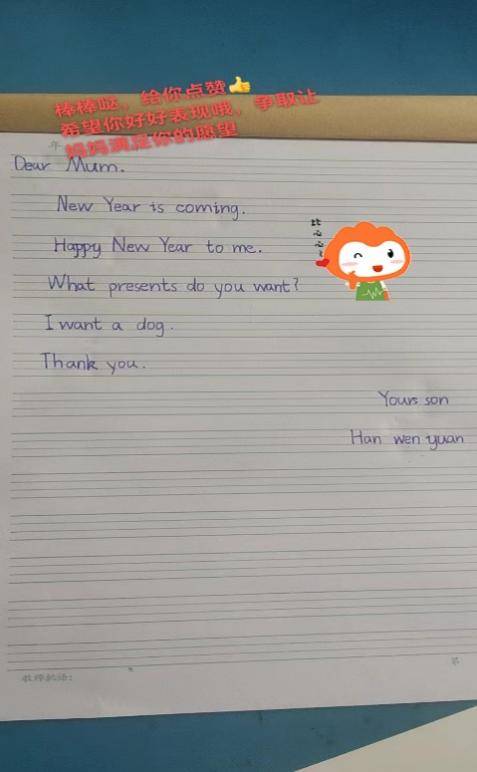 棒棒哒，给你点赞👍
希望你好好表现哦，争取让
妈妈满足你的愿望
年
Dear Mum.
New Year is coming.
Happy New Year to me.
比心心~
What presents do you want?
I want a dog.
Thank you.
Yours son
Han wen yuan
第
教师批语：